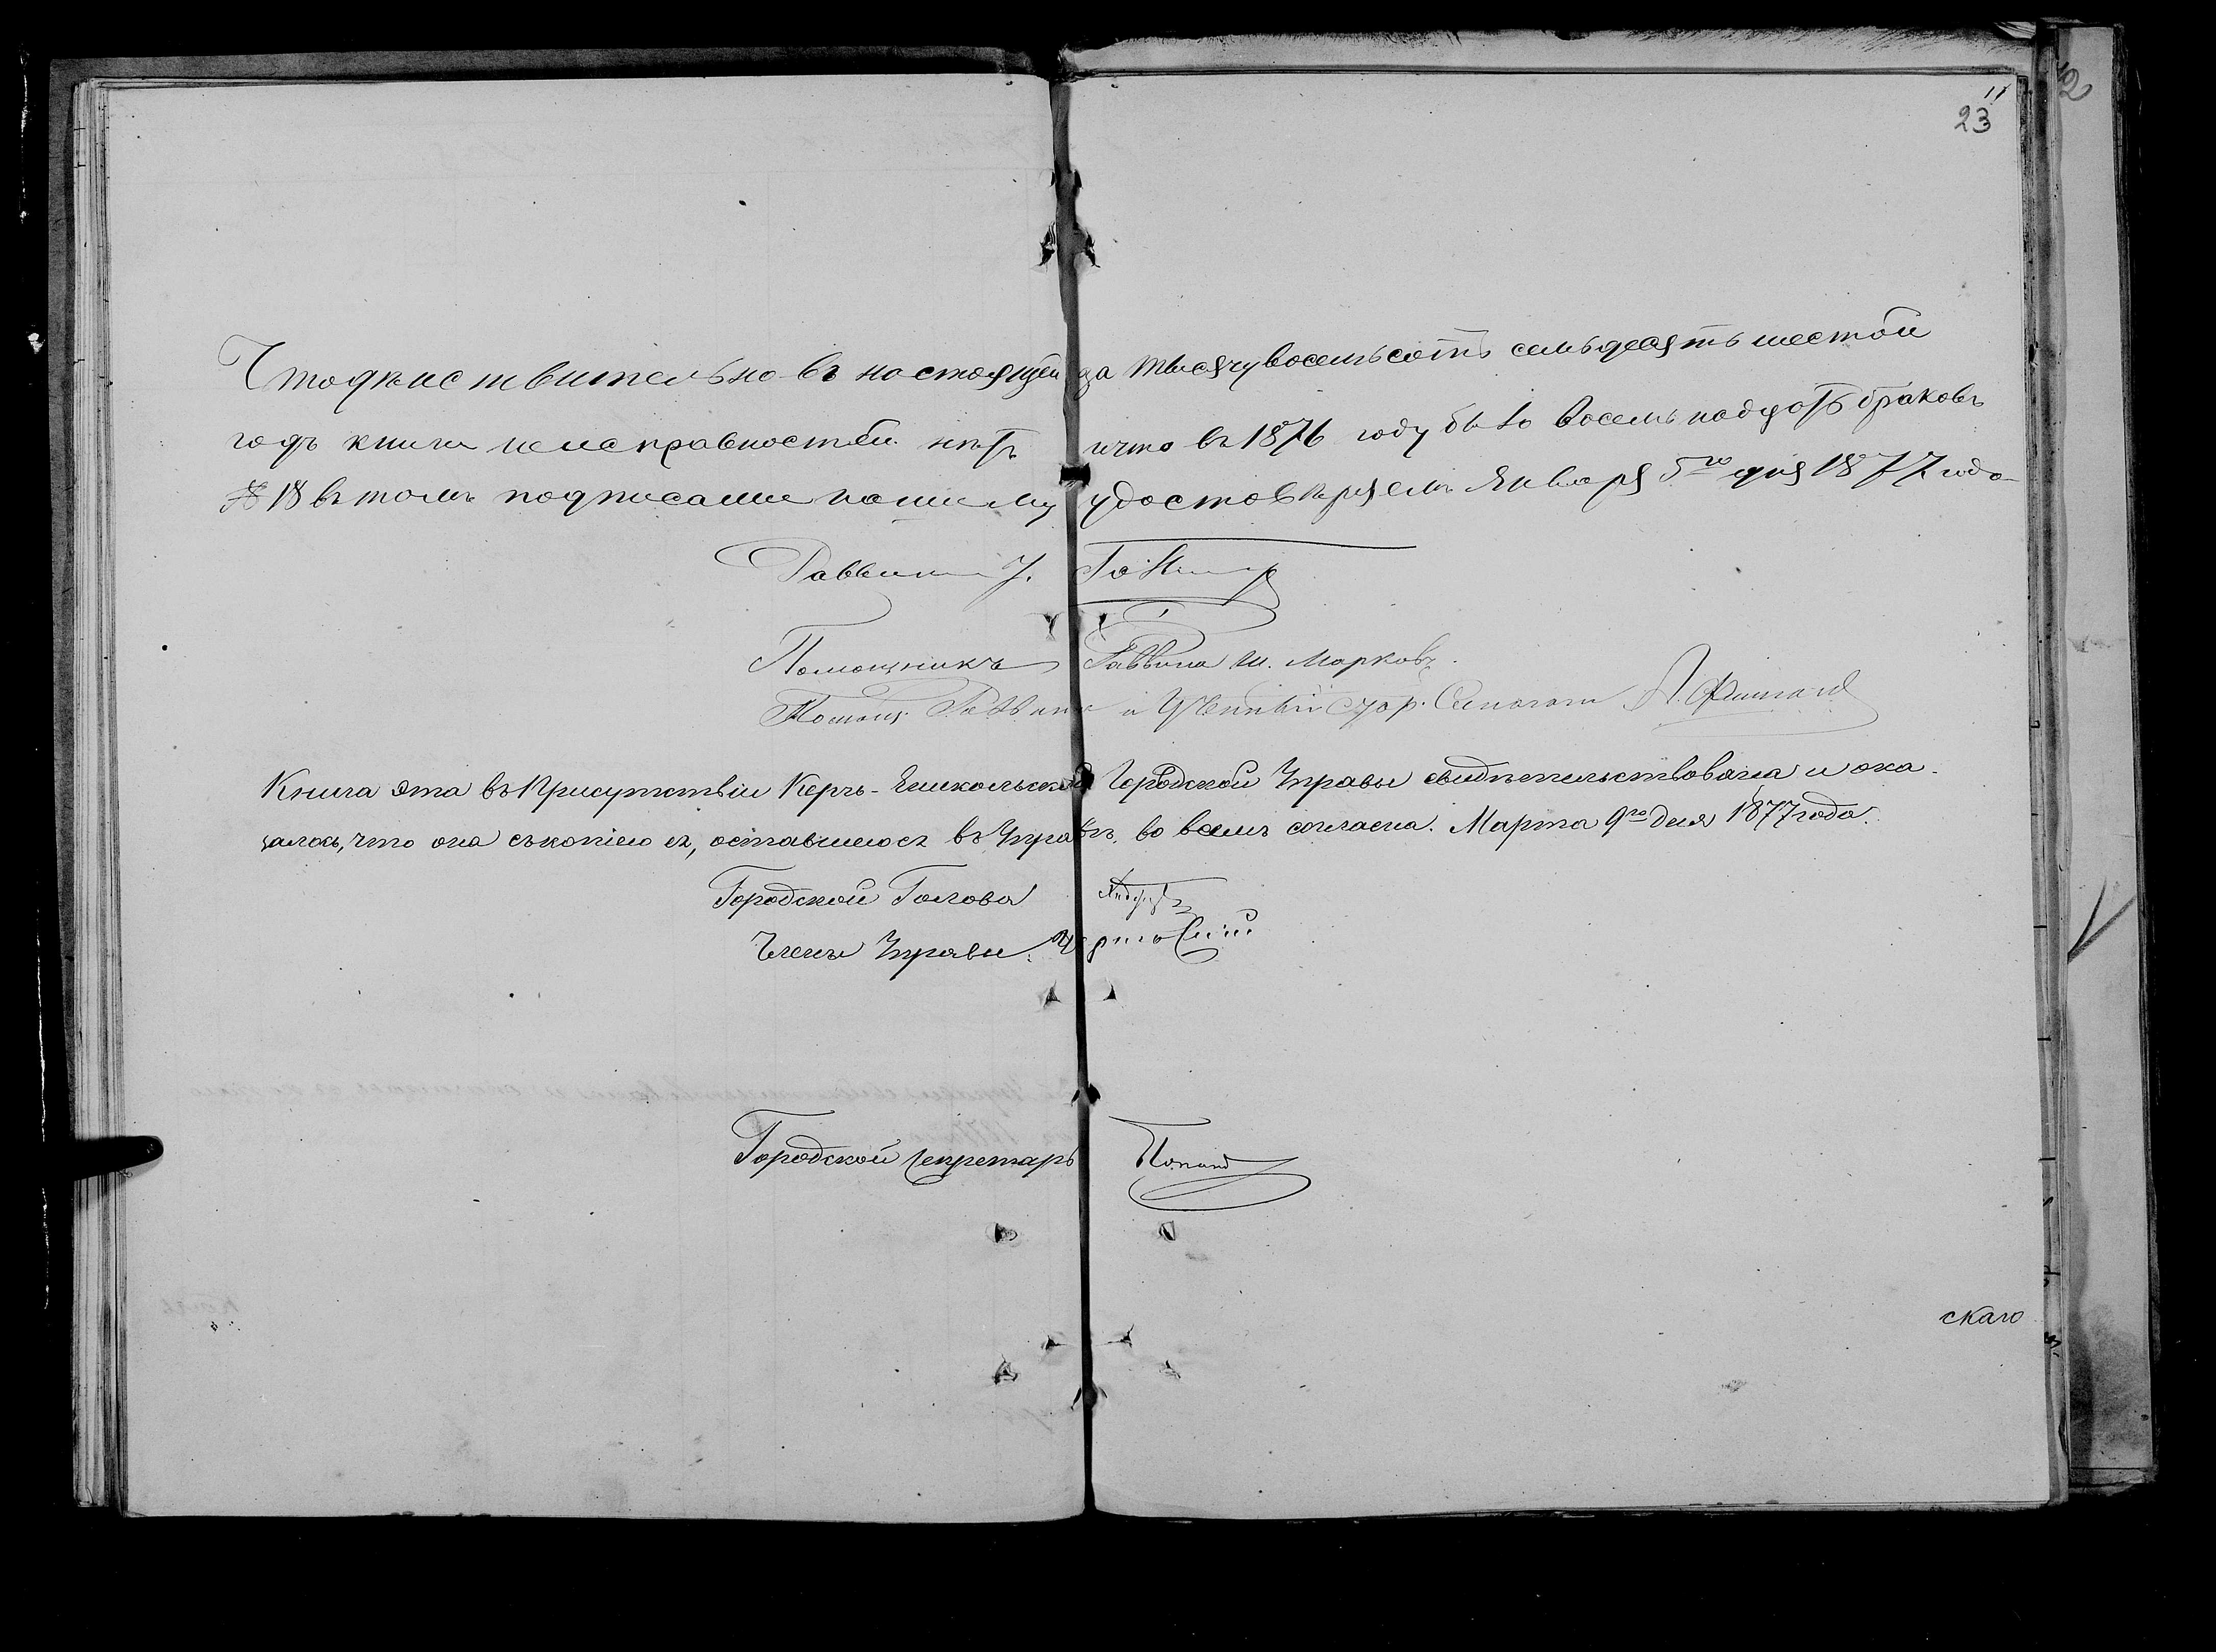 11
23
Что действительно въ настоящей за тысячу восемьсотъ семьдесятъ шестой
годъ книги неисправностей нѣтъ и что въ 1876 году было восемнадцать браковъ
№ 18 въ томъ подписами нашиму удостовѣряемъ Января 5го дня 1877 года
Раввинъ
Помощникъ Раввина Ш. Марковъ.
Помощ. Раввина и Ученый
Книга эта въ Присутствіи Керчь-Еникольской Городской Управы свидѣтельствована и ока-
залось, что она съ копіею ея, оставшеюся въ Управѣ, во всемъ согласна. Марта 9го дня 1877 года.
Городской Голова
Члены Управы:
Городской Секретарь
скаго